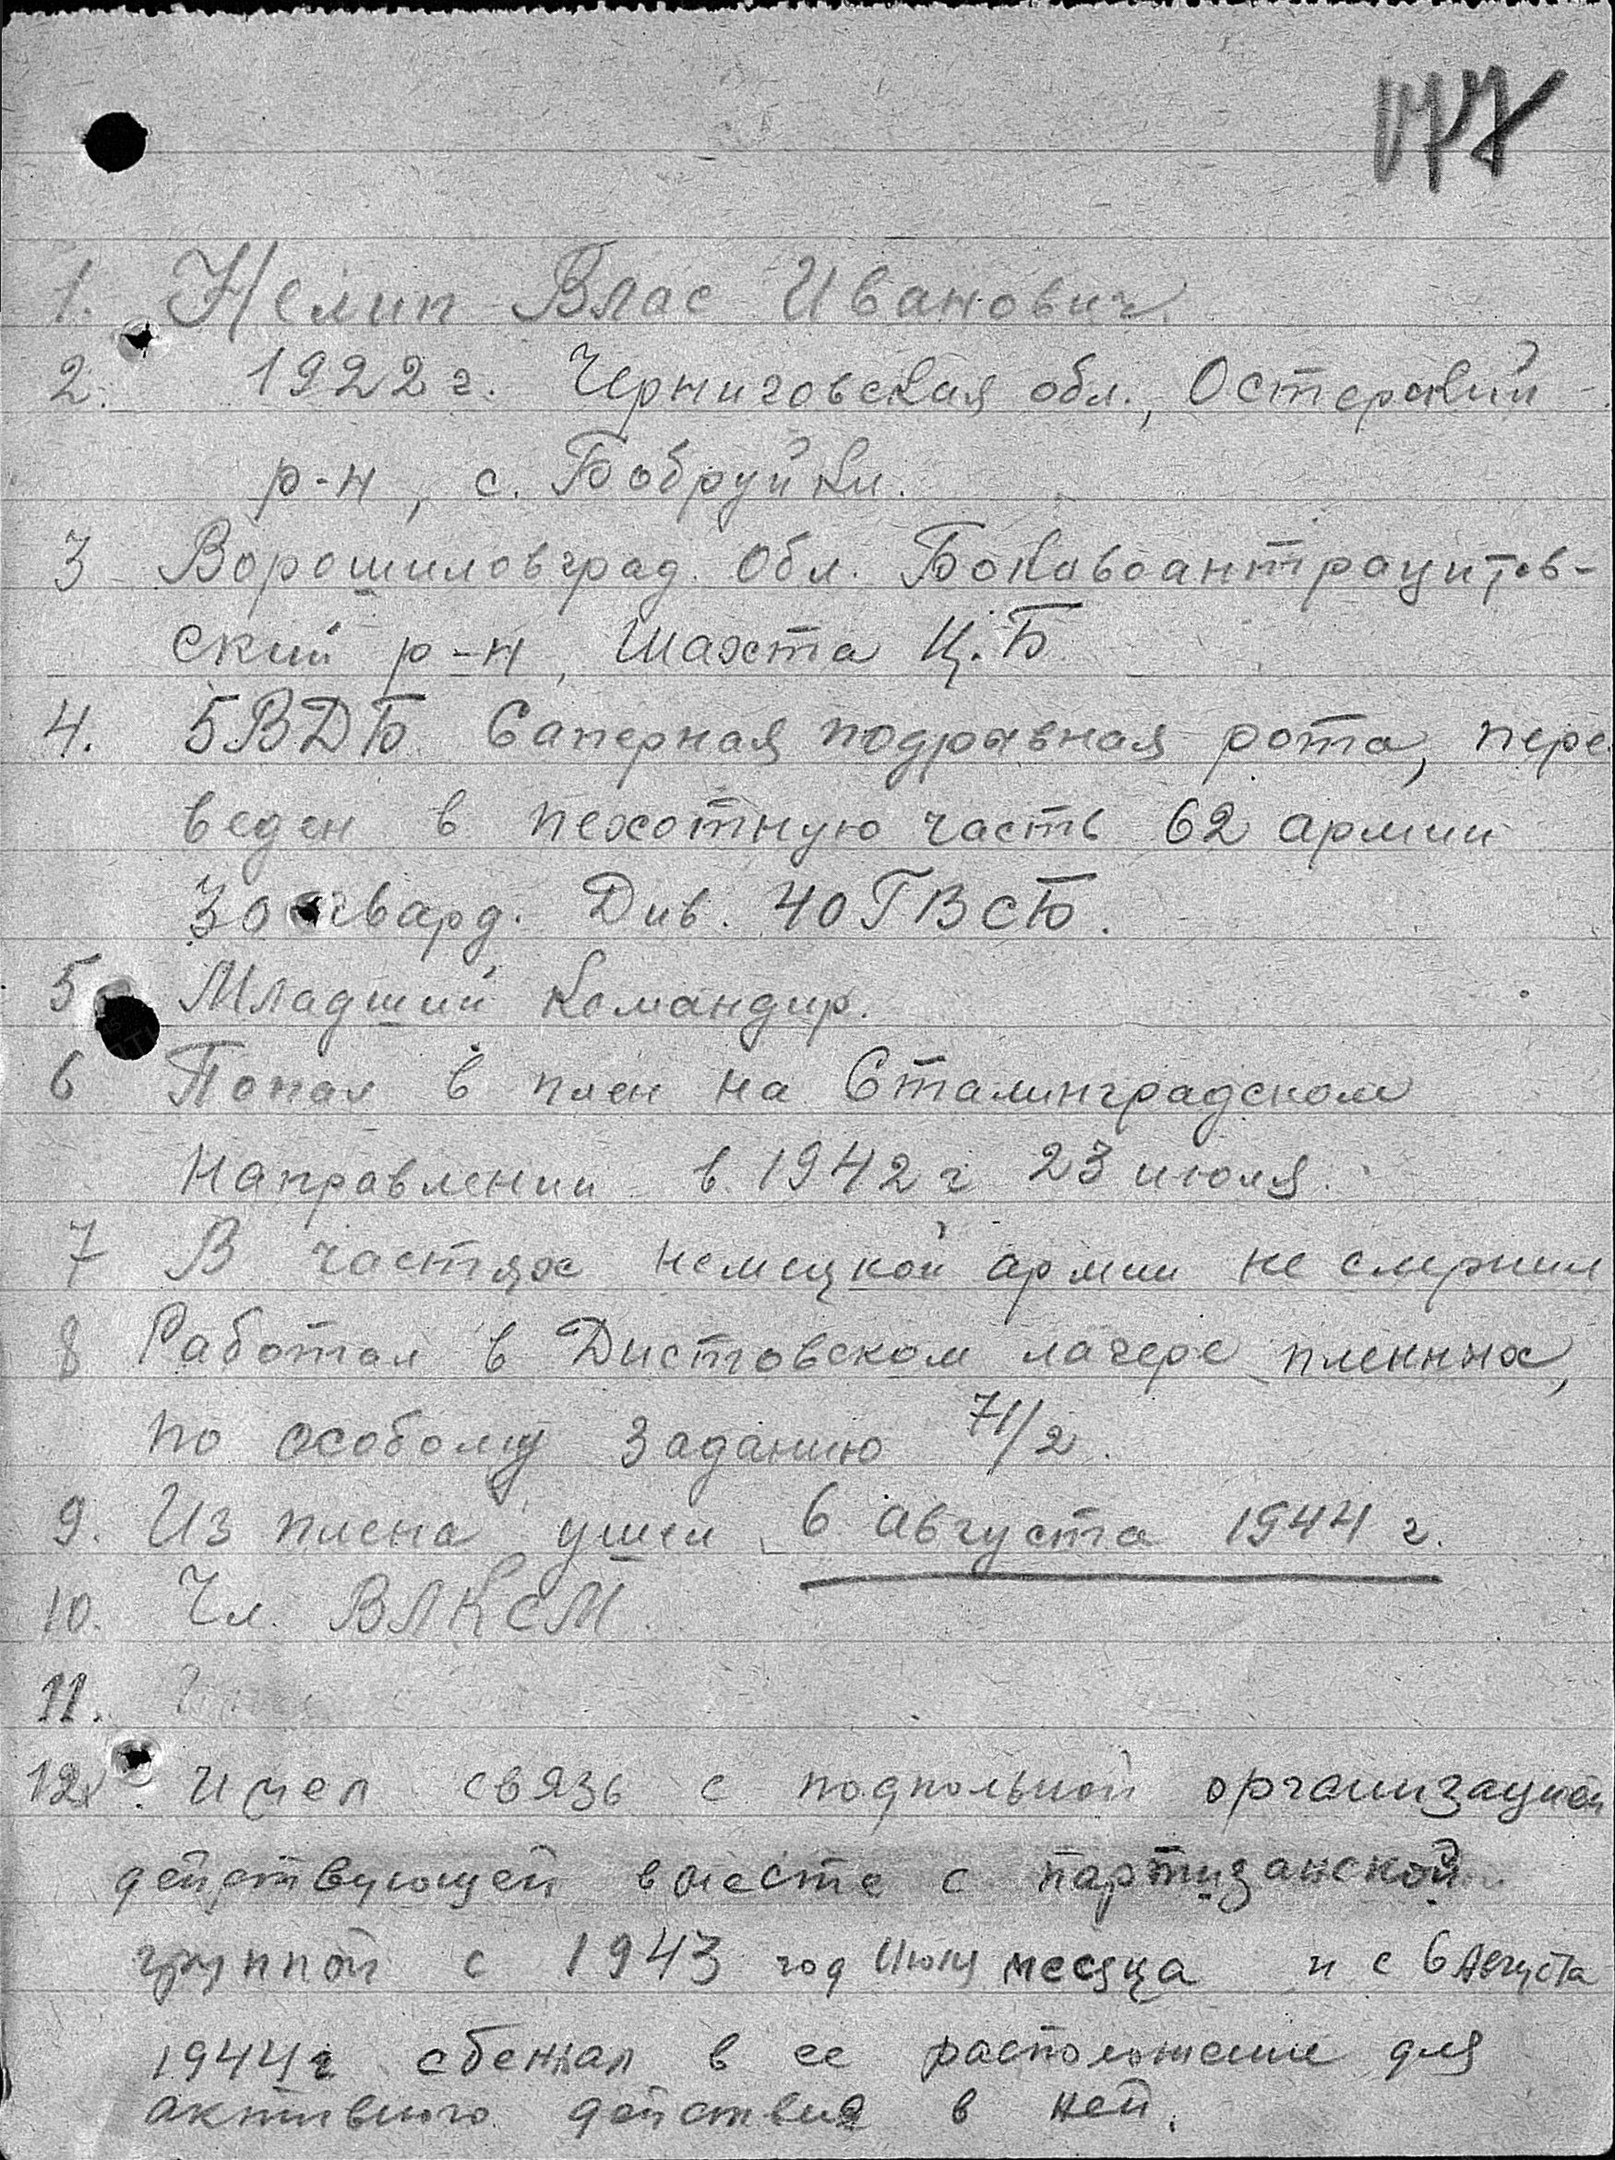 177
1. Нелип Влас Иванович.
2. 1922 г. Черниговская обл., Остерский
р-н, с. Бобруйки.
3 Ворошиловград. Обл. Боковоантрацитов-
ский р-н, Шахта Ц.Б
4. 5ВДБ Саперная подрывная рота, пере
веден в пехотную часть 62 армии
гвард. Див. 40 ГВСБ.
5 Младший командир.
6 Попал в плен на Сталинградском
направлении в 1942 г 23 июля.
7 В частях немецкой армии не служил
8 Работал в лагере пленных,
по особому заданию 71/2.
9. Из плена ушел 6 августа 1944 г.
10. Чл. ВЛКСМ.
11.
12. Имел связь с подпольной организацией
действующей вместе с партизанской
группой с 1943 год Июля месяца и с 6 Августа
1944 г сбежал в ее расположение для
активного действия в ней.